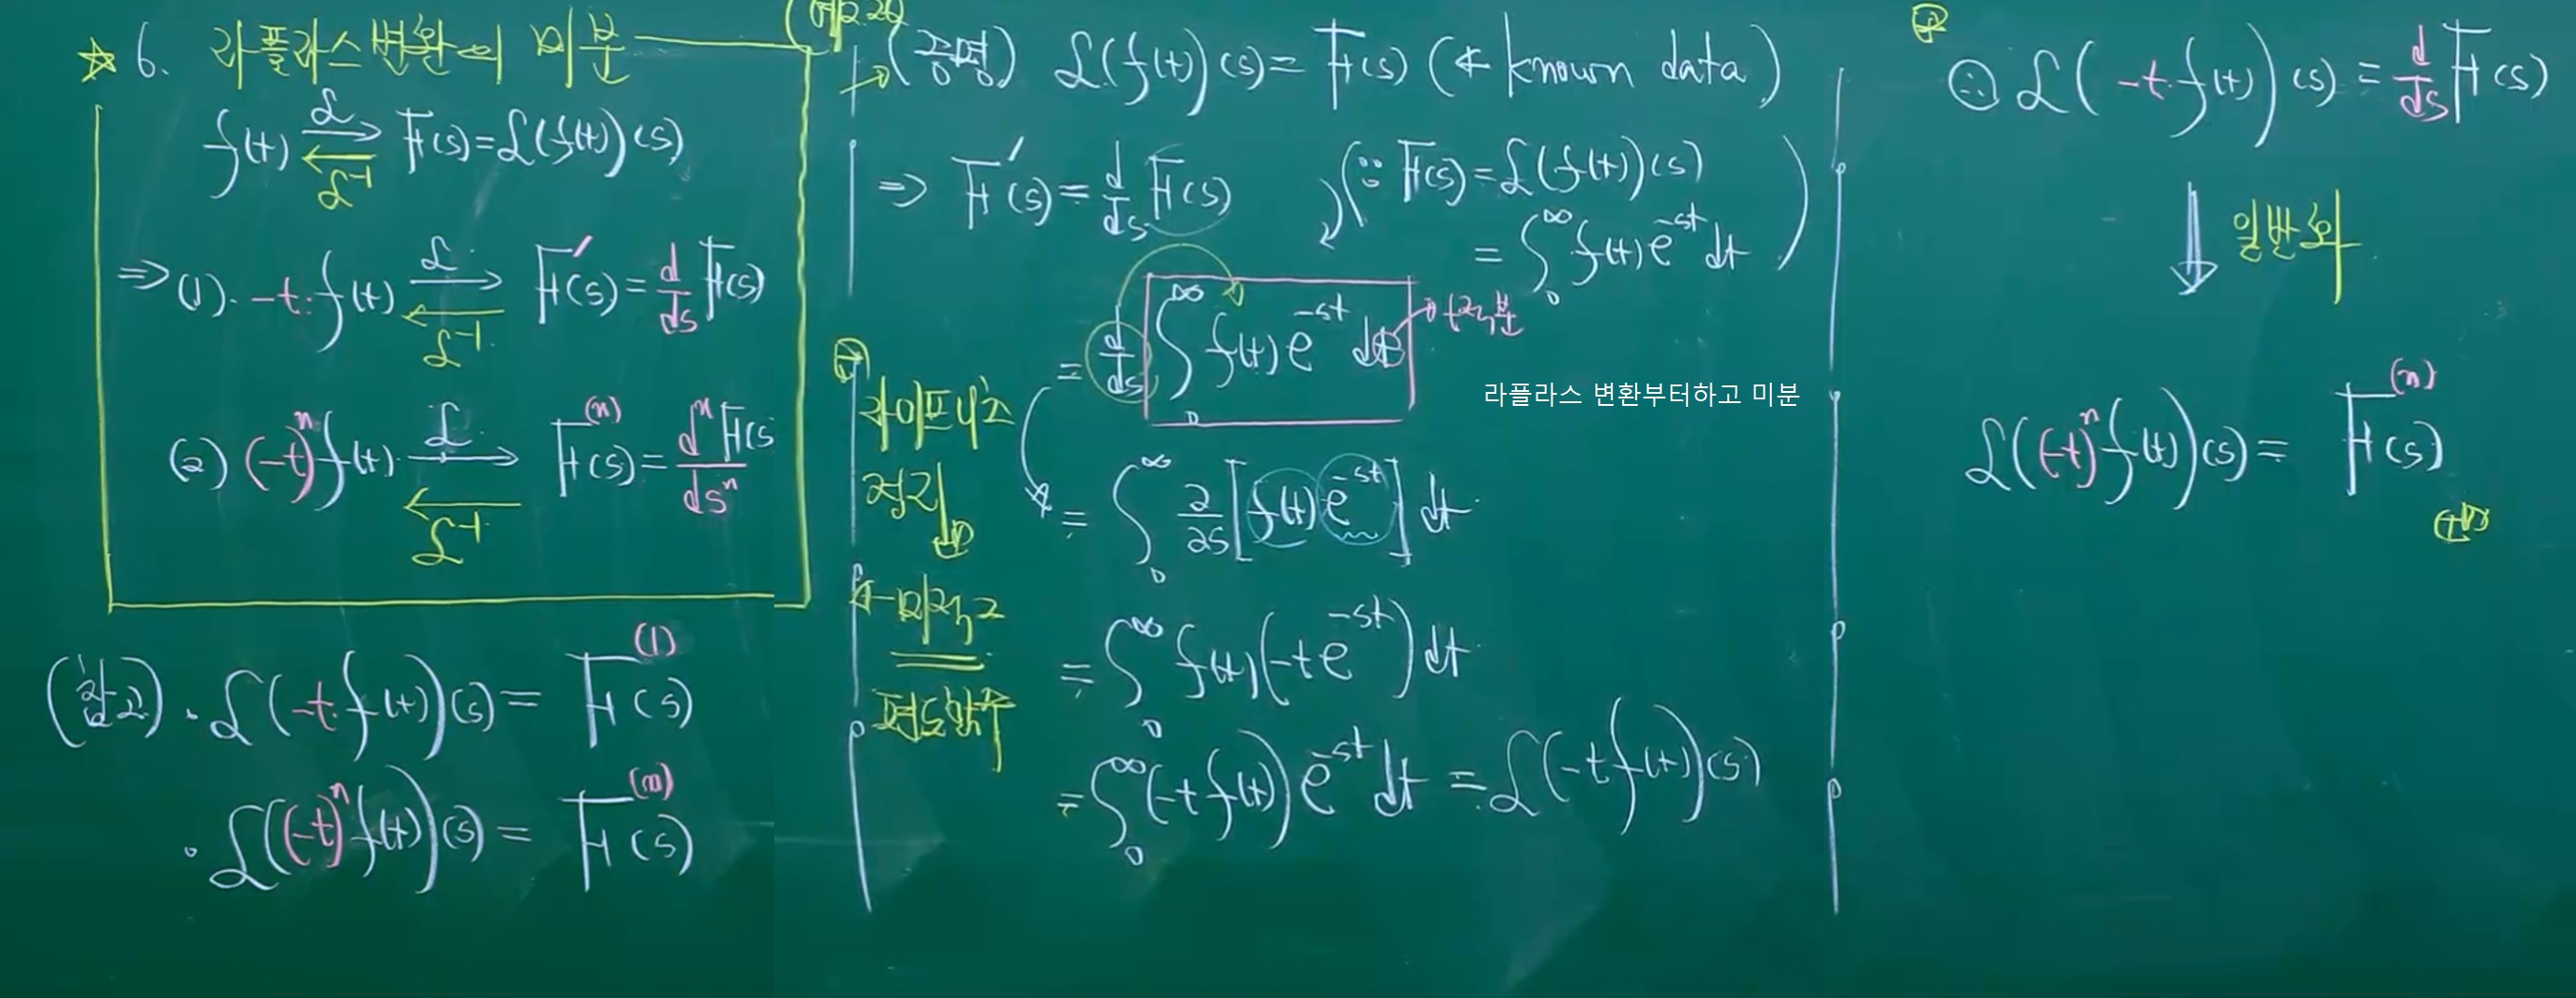 ☆ 6. 라플라스 변환의 미분
f(t) ⇄ F(s)=ℒ(f(t))(s)
ℒ
ℒ⁻¹
⇒ (1). -t·f(t) ⇄ F′(s)= d/ds F(s)
ℒ
ℒ⁻¹
(2) (-t)ⁿf(t) ⇄ F⁽ⁿ⁾(s)= dⁿF(s)/dsⁿ
ℒ
ℒ⁻¹
(참고) · ℒ(-t·f(t))(s)= F⁽¹⁾(s)
· ℒ((-t)ⁿf(t))(s)= F⁽ⁿ⁾(s)
(증명) ℒ(f(t))(s)= F(s) (← known data)
⇒ F′(s)= d/ds F(s) (∵ F(s)=ℒ(f(t))(s)
= ∫₀^∞ f(t)e^{-st}dt)
= d/ds ∫₀^∞ f(t)e^{-st}dt
t적분
라플라스 변환부터하고 미분
라이프니츠
정리
= ∫₀^∞ ∂/∂s [f(t)e^{-st}] dt
= ∫₀^∞ f(t)(-te^{-st})dt
편도함수
= ∫₀^∞ (-tf(t))e^{-st}dt = ℒ(-tf(t))(s)
∴ ℒ(-t·f(t))(s) = d/ds F(s)
⇓ 일반화
ℒ((-t)ⁿf(t))(s)= F⁽ⁿ⁾(s)